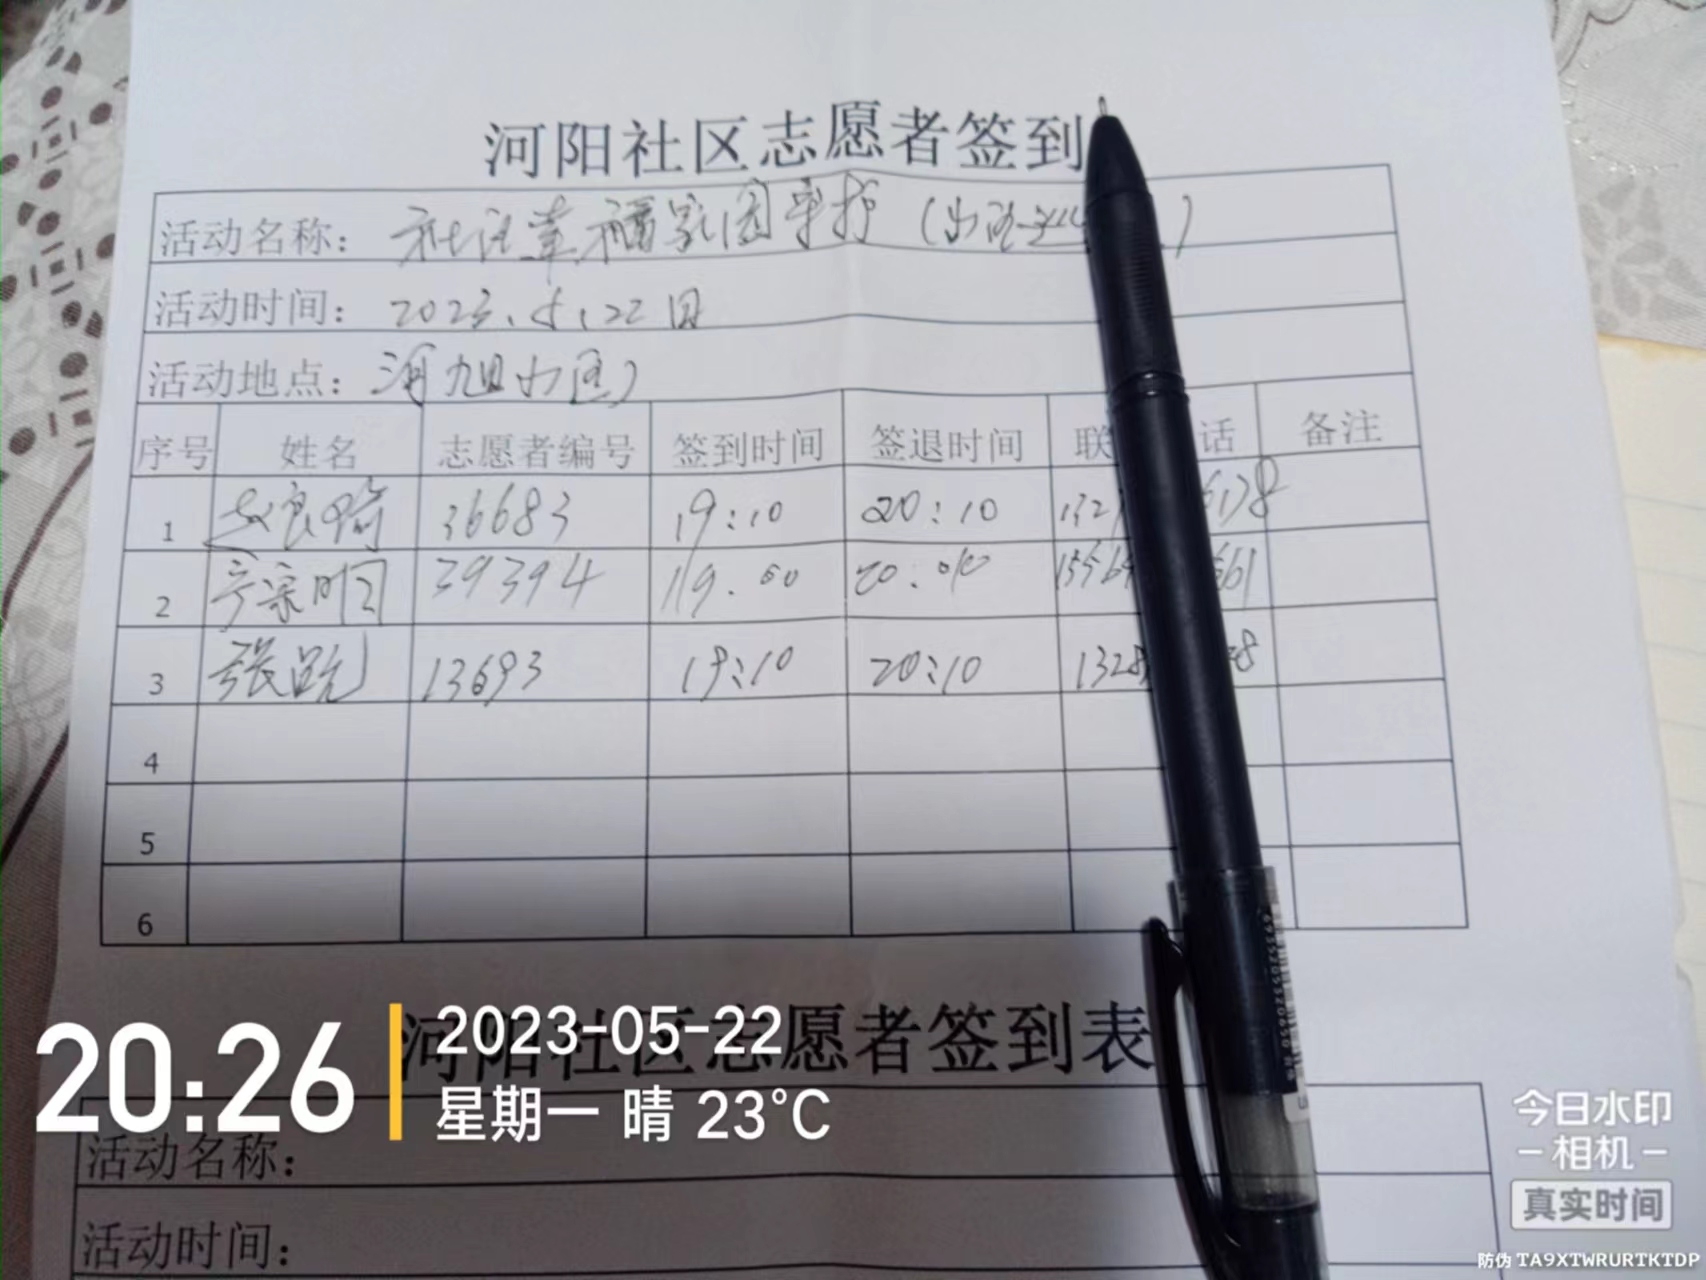 河阳社区志愿者签到
活动名称：
活动时间：2023.5.22日
活动地点：河旭小区
序号 姓名 志愿者编号 签到时间 签退时间 联 话 备注
1 36683 19:10 20:10 132 6178
2 39394 19.00 20:00 1556 661
3 张 13693 19:10 20:10 1328 8
4
5
6
河阳社区志愿者签到表
20:26
2023-05-22
星期一 晴 23°C
活动名称：
活动时间：
今日水印
相机
真实时间
防伪 TA9XTWRURTKTDP